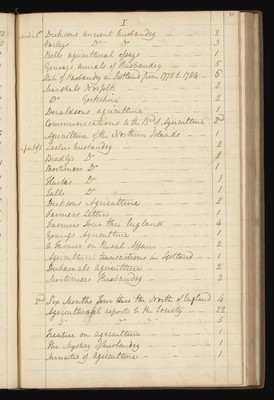 I
Dicksons ancient husbandry — 2
Varleys Do Do — 3
Bells agricultural essays — 1
Youngs annals of Husbandry — 5
State of Husbandry in Scotland from 1778 to 1784 — 6
Marshals Norfolk — 2
Do Yorkshire — 2
Donaldsons agriculture — 1
Communications to the Bd of Agriculture
Agriculture of the Northern Islands — 1
Leslies husbandry — 2
Bradlys Do — 1
Mortimers Do — 1
Do — 1
Do — 1
Dicksons Agriculture — 2
Farmers Letters — 1
Farmers Tour thro England — 4
Youngs Agriculture — 1
A Farmer on Rural Affairs — 2
Agricultural transactions in Scotland — 1
Duhamels agriculture — 2
Mortimers Husbandry — 2
Six Months Tour thro the North of England 4
Agricultural reports to the Society — 22
3
Treatise on agriculture — 1
The Mystery of husbandry — 1
Minutes of Agriculture — 1